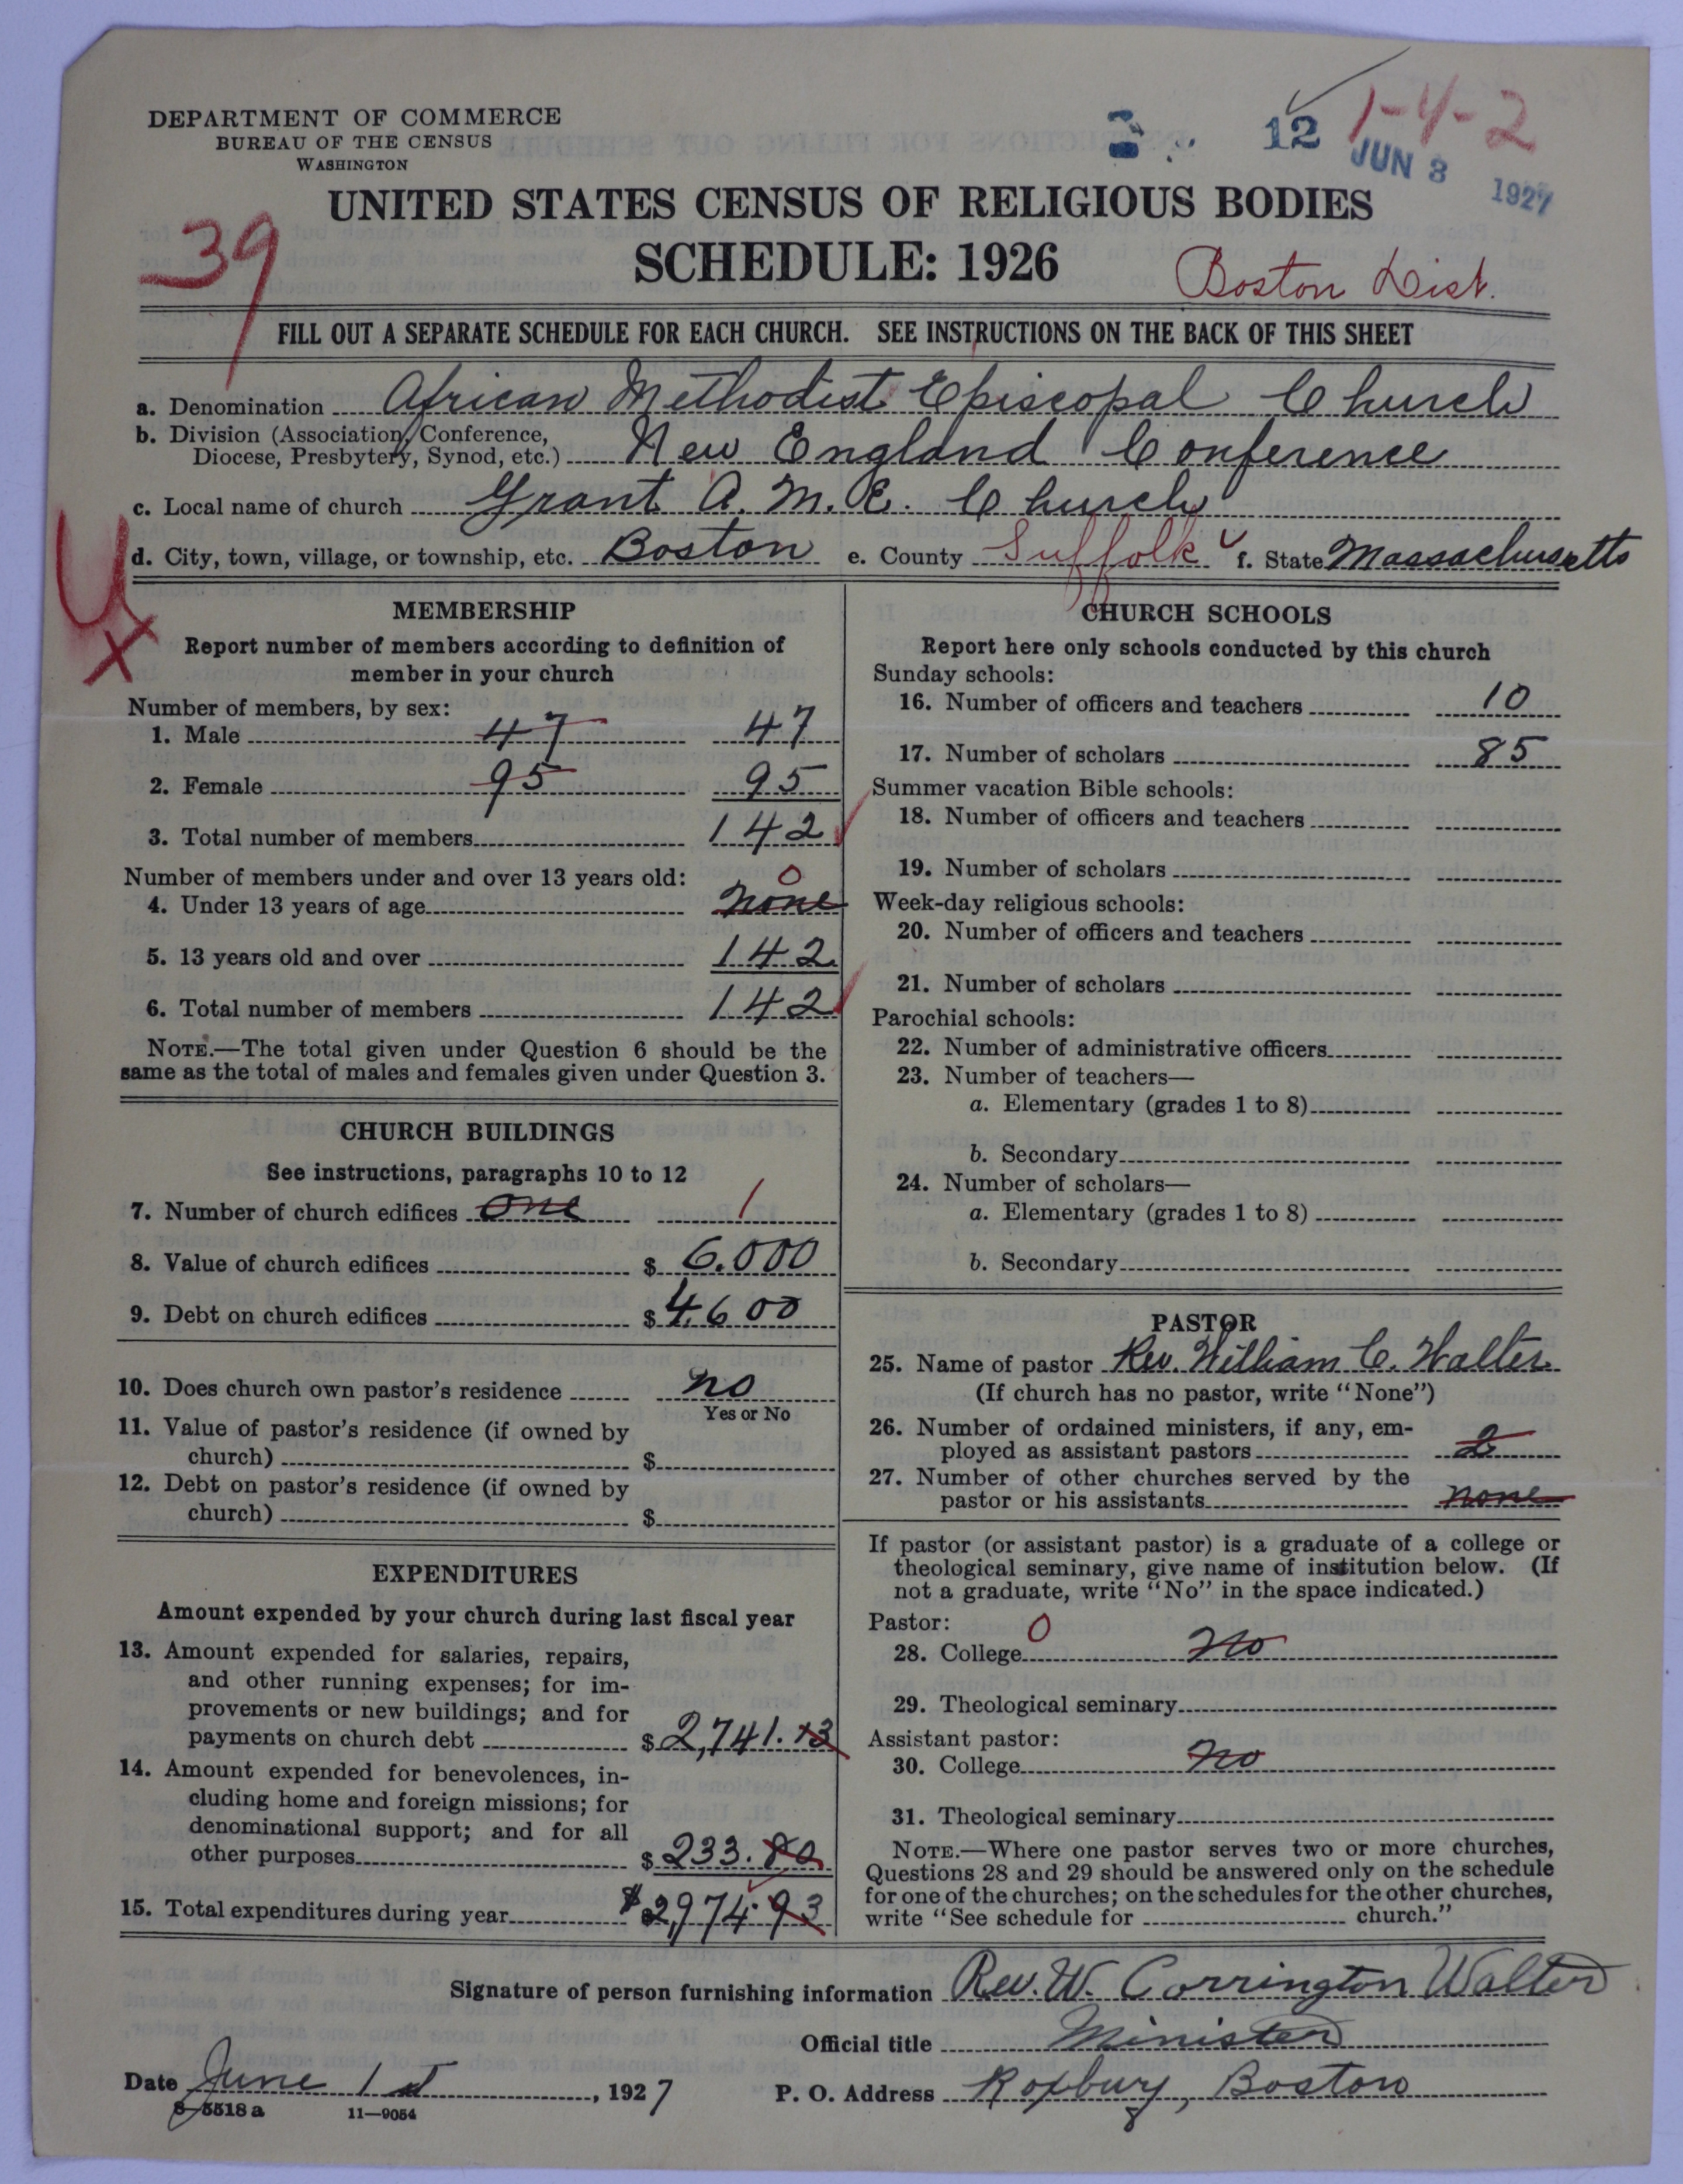 DEPARTMENT OF COMMERCE
BUREAU OF THE CENSUS
WASHINGTON
12 1-4-2
JUN 3 1927
UNITED STATES CENSUS OF RELIGIOUS BODIES
39
SCHEDULE: 1926
Boston Dist.
FILL OUT A SEPARATE SCHEDULE FOR EACH CHURCH. SEE INSTRUCTIONS ON THE BACK OF THIS SHEET
a. Denomination African Methodist Episcopal Church
b. Division (Association, Conference,
Diocese, Presbytery, Synod, etc.) New England Conference
c. Local name of church Grant A. M. E. Church
d. City, town, village, or township, etc. Boston e. County Suffolk f. State Massachusetts
MEMBERSHIP
Report number of members according to definition of
member in your church
Number of members, by sex:
1. Male 47 47
2. Female 95 95
3. Total number of members 142
Number of members under and over 13 years old: 0
4. Under 13 years of age none
5. 13 years old and over 142
6. Total number of members 142
NOTE.—The total given under Question 6 should be the
same as the total of males and females given under Question 3.
CHURCH BUILDINGS
See instructions, paragraphs 10 to 12
7. Number of church edifices One 1
8. Value of church edifices $ 6.000
9. Debt on church edifices $ 4,600
10. Does church own pastor's residence no
Yes or No
11. Value of pastor's residence (if owned by
church) $
12. Debt on pastor's residence (if owned by
church) $
EXPENDITURES
Amount expended by your church during last fiscal year
13. Amount expended for salaries, repairs,
and other running expenses; for im-
provements or new buildings; and for
payments on church debt $ 2,741.13
14. Amount expended for benevolences, in-
cluding home and foreign missions; for
denominational support; and for all
other purposes $ 233.80
15. Total expenditures during year $ 2,974.93
CHURCH SCHOOLS
Report here only schools conducted by this church
Sunday schools:
16. Number of officers and teachers 10
17. Number of scholars 85
Summer vacation Bible schools:
18. Number of officers and teachers
19. Number of scholars
Week-day religious schools:
20. Number of officers and teachers
21. Number of scholars
Parochial schools:
22. Number of administrative officers
23. Number of teachers—
a. Elementary (grades 1 to 8)
b. Secondary
24. Number of scholars—
a. Elementary (grades 1 to 8)
b. Secondary
PASTOR
25. Name of pastor Rev. William C. Walter
(If church has no pastor, write "None")
26. Number of ordained ministers, if any, em-
ployed as assistant pastors 2
27. Number of other churches served by the
pastor or his assistants none
If pastor (or assistant pastor) is a graduate of a college or
theological seminary, give name of institution below. (If
not a graduate, write "No" in the space indicated.)
Pastor: 0
28. College no
29. Theological seminary
Assistant pastor:
30. College no
31. Theological seminary
NOTE.—Where one pastor serves two or more churches,
Questions 28 and 29 should be answered only on the schedule
for one of the churches; on the schedules for the other churches,
write "See schedule for church."
Signature of person furnishing information Rev. W. Corrington Walter
Official title Minister
Date June 1st, 1927 P. O. Address Roxbury, Boston
8-5518 a 11—9054